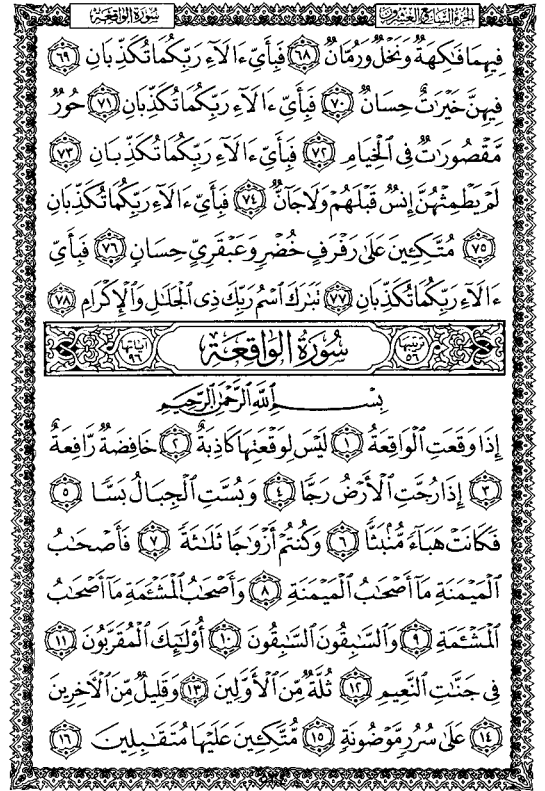 الجزء السابع والعشرون سورة الواقعة
فِيهِمَا فَٰكِهَةٌ وَنَخْلٌ وَرُمَّانٌ ٦٨ فَبِأَيِّ ءَالَآءِ رَبِّكُمَا تُكَذِّبَانِ ٦٩
فِيهِنَّ خَيْرَٰتٌ حِسَانٌ ٧٠ فَبِأَيِّ ءَالَآءِ رَبِّكُمَا تُكَذِّبَانِ ٧١ حُورٌ
مَّقْصُورَٰتٌ فِي ٱلْخِيَامِ ٧٢ فَبِأَيِّ ءَالَآءِ رَبِّكُمَا تُكَذِّبَانِ ٧٣
لَمْ يَطْمِثْهُنَّ إِنسٌ قَبْلَهُمْ وَلَا جَآنٌّ ٧٤ فَبِأَيِّ ءَالَآءِ رَبِّكُمَا تُكَذِّبَانِ
٧٥ مُتَّكِـِٔينَ عَلَىٰ رَفْرَفٍ خُضْرٍ وَعَبْقَرِيٍّ حِسَانٍ ٧٦ فَبِأَيِّ
ءَالَآءِ رَبِّكُمَا تُكَذِّبَانِ ٧٧ تَبَٰرَكَ ٱسْمُ رَبِّكَ ذِي ٱلْجَلَٰلِ وَٱلْإِكْرَامِ ٧٨
ترتيبها ٥٦ سُورَةُ الوَاقِعَةِ آياتها ٩٦
بِسْمِ ٱللَّهِ ٱلرَّحْمَٰنِ ٱلرَّحِيمِ
إِذَا وَقَعَتِ ٱلْوَاقِعَةُ ١ لَيْسَ لِوَقْعَتِهَا كَاذِبَةٌ ٢ خَافِضَةٌ رَّافِعَةٌ
٣ إِذَا رُجَّتِ ٱلْأَرْضُ رَجًّا ٤ وَبُسَّتِ ٱلْجِبَالُ بَسًّا ٥
فَكَانَتْ هَبَآءً مُّنۢبَثًّا ٦ وَكُنتُمْ أَزْوَٰجًا ثَلَٰثَةً ٧ فَأَصْحَٰبُ
ٱلْمَيْمَنَةِ مَآ أَصْحَٰبُ ٱلْمَيْمَنَةِ ٨ وَأَصْحَٰبُ ٱلْمَشْـَٔمَةِ مَآ أَصْحَٰبُ
ٱلْمَشْـَٔمَةِ ٩ وَٱلسَّٰبِقُونَ ٱلسَّٰبِقُونَ ١٠ أُو۟لَٰٓئِكَ ٱلْمُقَرَّبُونَ ١١
فِي جَنَّٰتِ ٱلنَّعِيمِ ١٢ ثُلَّةٌ مِّنَ ٱلْأَوَّلِينَ ١٣ وَقَلِيلٌ مِّنَ ٱلْآخِرِينَ
١٤ عَلَىٰ سُرُرٍ مَّوْضُونَةٍ ١٥ مُّتَّكِـِٔينَ عَلَيْهَا مُتَقَٰبِلِينَ ١٦